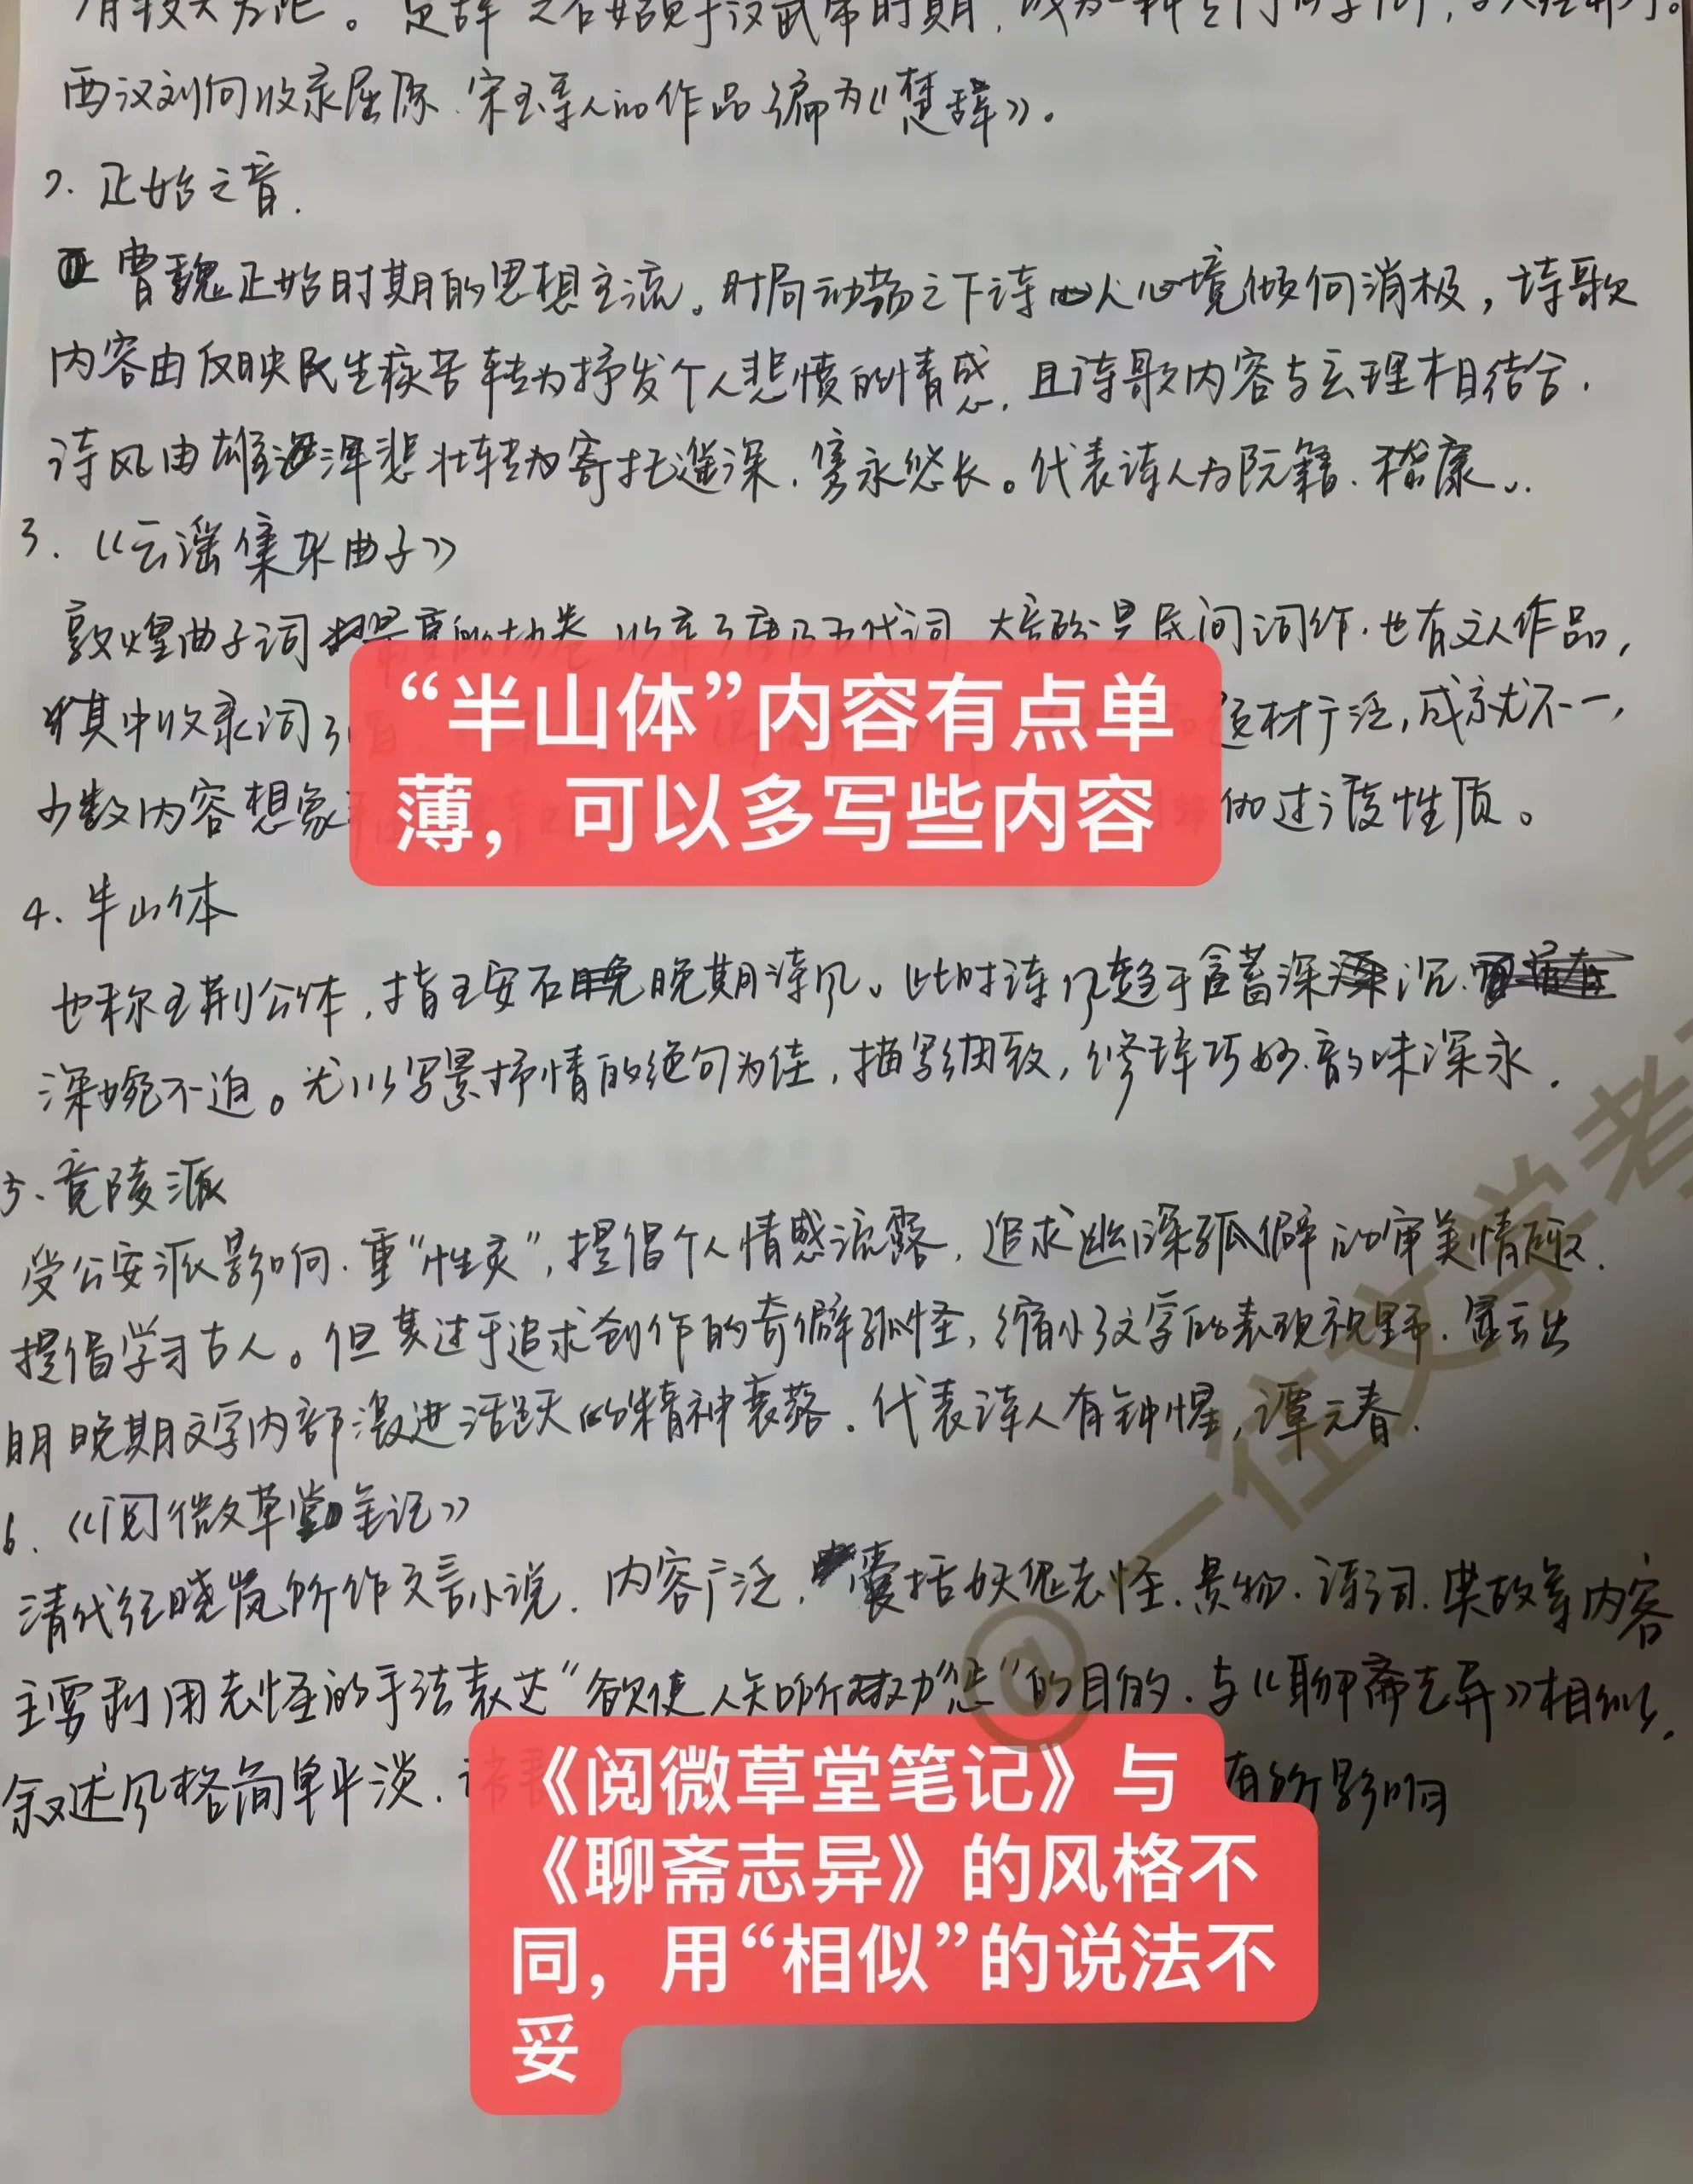 西汉刘向收录屈原、宋玉等人的作品编为《楚辞》。
2. 正始之音.
曹魏正始时期的思想主流。时局动荡之下诗人心境倾向消极，诗歌
内容由反映民生疾苦转为抒发个人悲愤的情感，且诗歌内容与玄理相结合.
诗风由雄浑悲壮转为寄托遥深、隽永悠长。代表诗人为阮籍、嵇康。
3. 《云谣集杂曲子》
敦煌曲子词 民间词作.也有文人作品，
其中收录词 题材广泛，成就不一，
少数内容想象 的过渡性质。
“半山体”内容有点单
薄，可以多写些内容
4. 半山体
也称王荆公体，指王安石晚期诗风。此时诗风趋于含蓄深沉、
深婉不迫。尤以写景抒情的绝句为佳，描写细致，修辞巧妙.韵味深永.
5. 竟陵派
受公安派影响.重“性灵”，提倡个人情感流露，追求幽深孤僻的审美情趣.
提倡学习古人。但其过于追求创作的奇僻孤怪，缩小了文学的表现视野.显示出
明晚期文学内部激进活跃的精神衰落.代表诗人有钟惺，谭元春.
6. 《阅微草堂笔记》
清代纪晓岚所作文言小说.内容广泛，囊括妖鬼志怪.景物.诗词.典故等内容
主要利用志怪的手法表达“欲使人知所劝惩”的目的.与《聊斋志异》相似.
叙述风格简单平淡. 有所影响
《阅微草堂笔记》与
《聊斋志异》的风格不
同，用“相似”的说法不
妥
@一往文学考